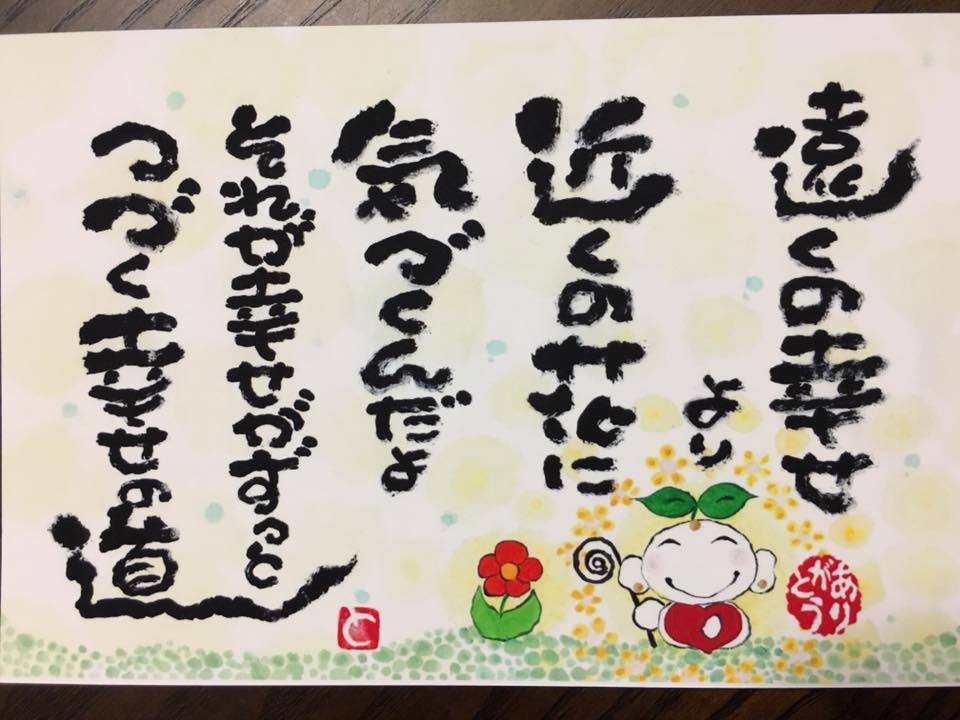 遠くの幸せ
より
近くの花に
気づくんだよ
それが幸せがずっと
つづく幸せの道
ありがとう